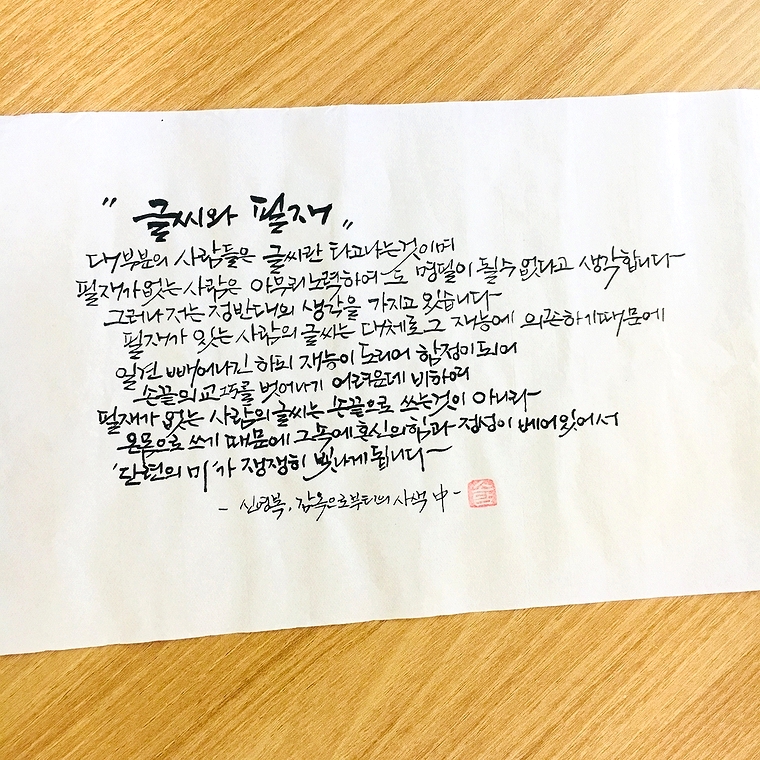 " 글씨와 필재 "
대부분의 사람들은 글씨란 타고나는것이며
필재가없는 사람은 아무리노력하여도 명필이 될수없다고 생각합니다~
그러나 저는 정반대의 생각을 가지고 있습니다~
필재가 있는 사람의 글씨는 대체로 그 재능에 의존하기때문에
일견 빼어나긴 하되 재능이 도리어 함정이되어
손끝의 교교를 벗어나기 어려운데 비하여
필재가 없는 사람의글씨는 손끝으로 쓰는것이 아니라~
온몸으로 쓰게 때문에 그속에혼신의힘과 정성이 베어있어서
'단련의 미'가 쟁쟁히 빛나게 됩니다~
- 신영복, 감옥으로부터의 사색 中 -